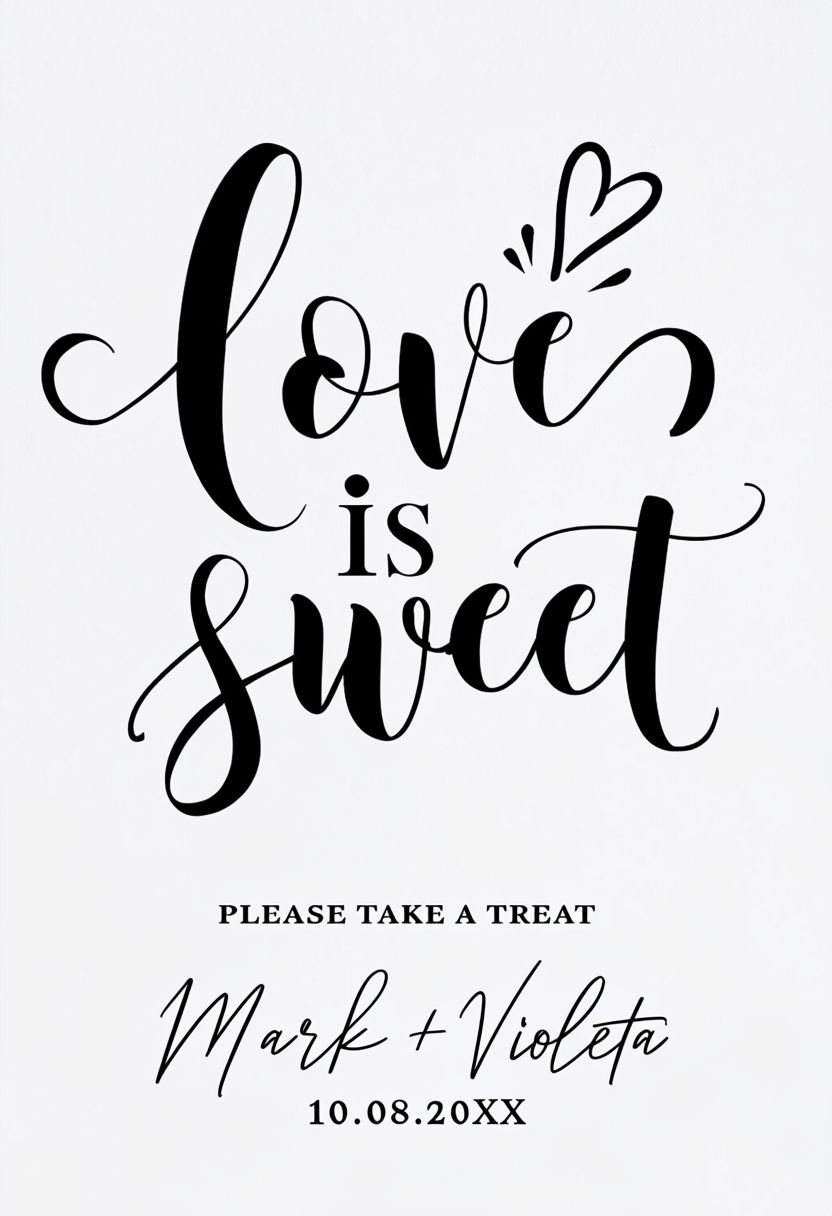 love
is
sweet
PLEASE TAKE A TREAT
Mark + Violeta
10.08.20XX